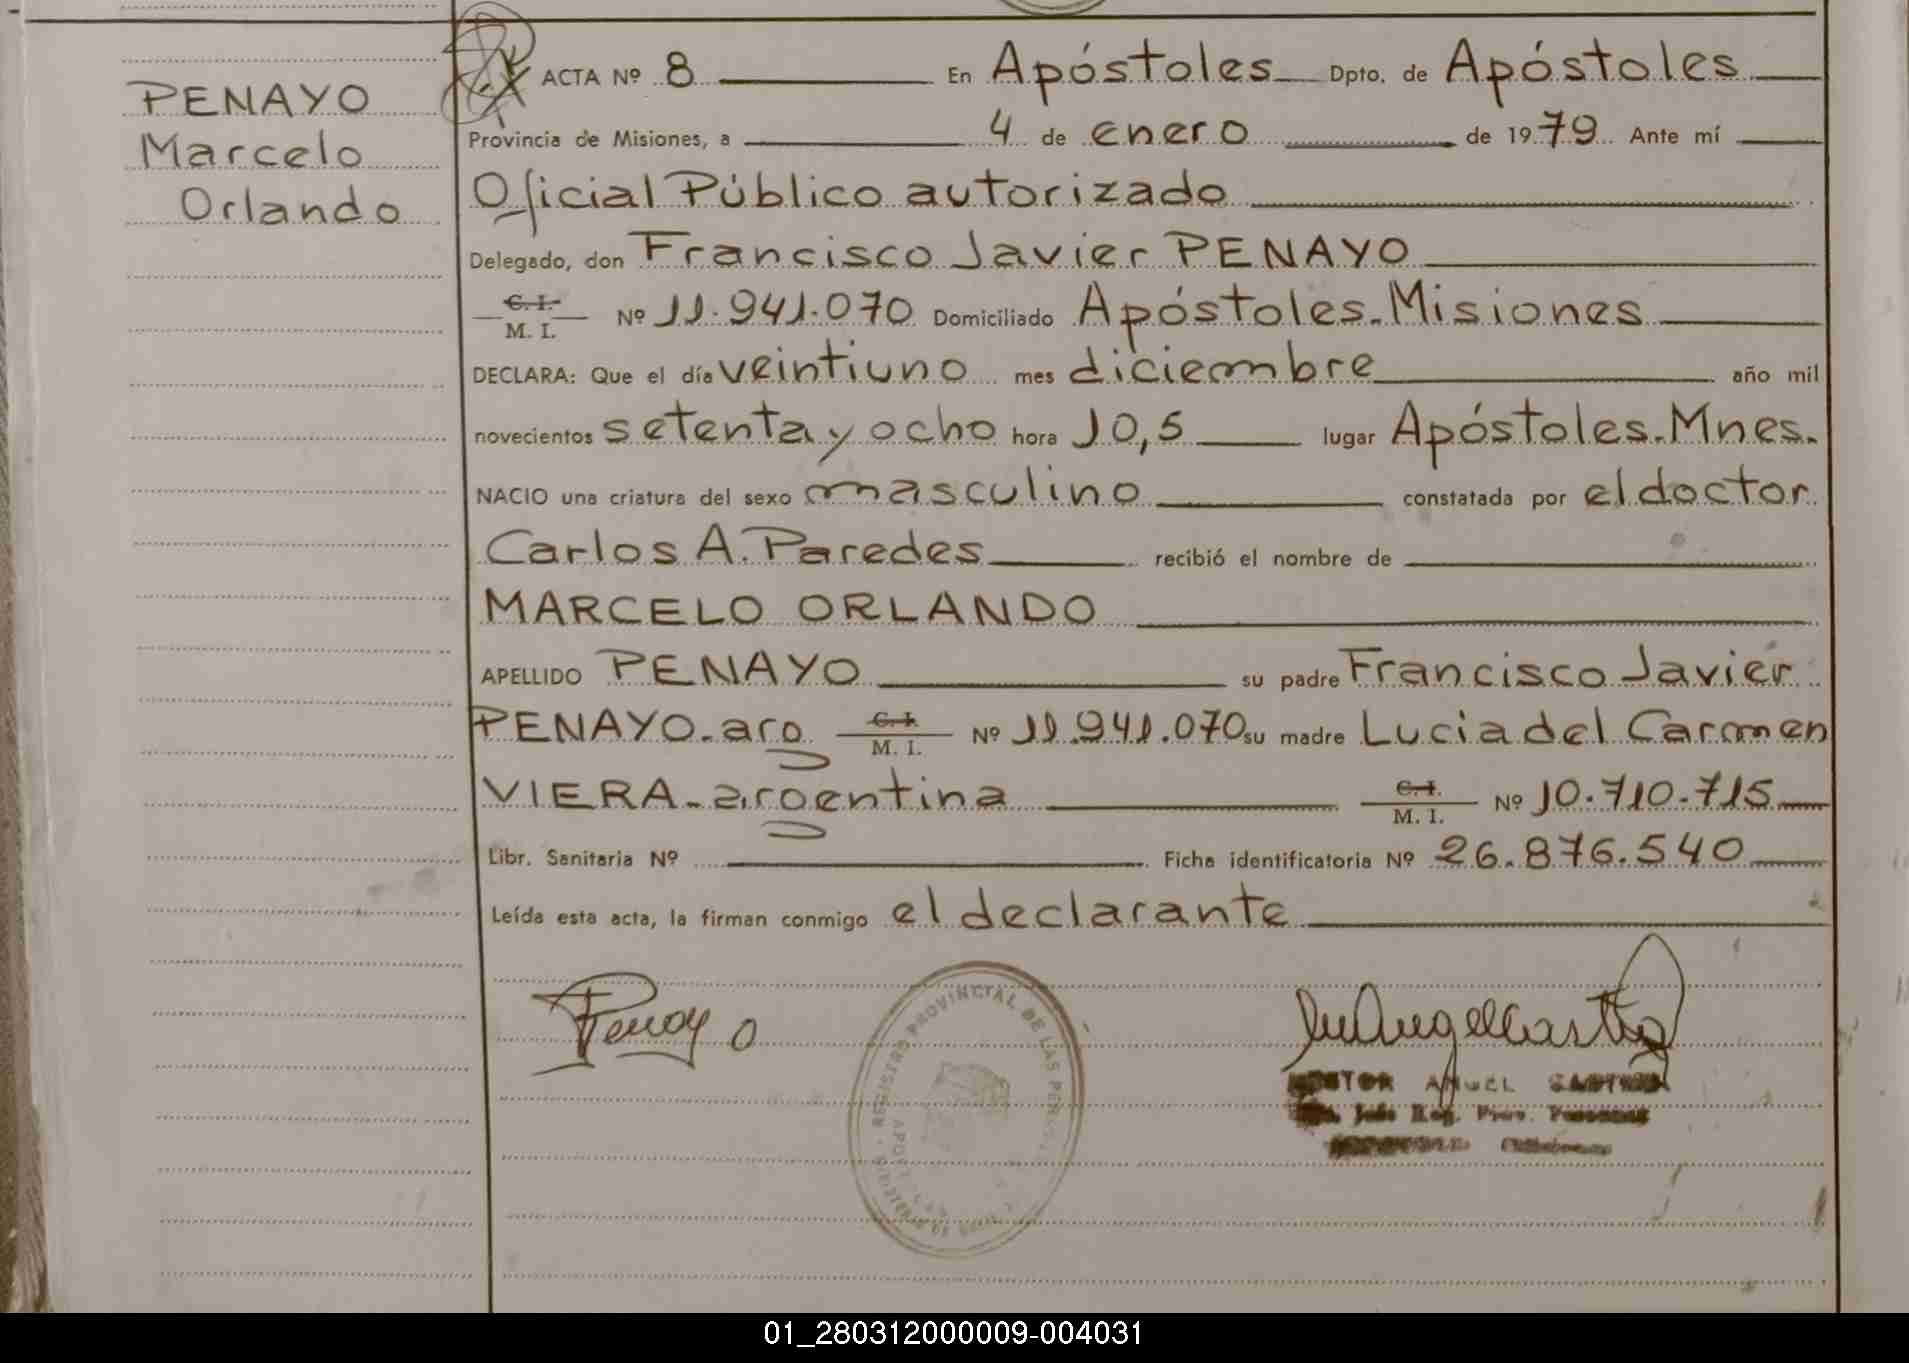 PENAYO
Marcelo
Orlando
ACTA Nº 8 En Apóstoles Dpto. de Apóstoles
Provincia de Misiones, a 4 de enero de 1979 Ante mí
Oficial Público autorizado
Delegado, don Francisco Javier PENAYO
C. I.
M. I. Nº 11.941.070 Domiciliado Apóstoles-Misiones
DECLARA: Que el día veintiuno mes diciembre año mil
novecientos setenta y ocho hora 10,5 lugar Apóstoles-Mnes.
NACIO una criatura del sexo masculino constatada por el doctor
Carlos A. Paredes recibió el nombre de
MARCELO ORLANDO
APELLIDO PENAYO su padre Francisco Javier
PENAYO-arg C. I.
M. I. Nº 11.941.070 su madre Lucia del Carmen
VIERA-argentina C. I.
M. I. Nº 10.710.715
Libr. Sanitaria Nº Ficha identificatoria Nº 26.876.540
Leída esta acta, la firman conmigo el declarante
Penayo
REGISTRO PROVINCIAL DE LAS
01_280312000009-004031